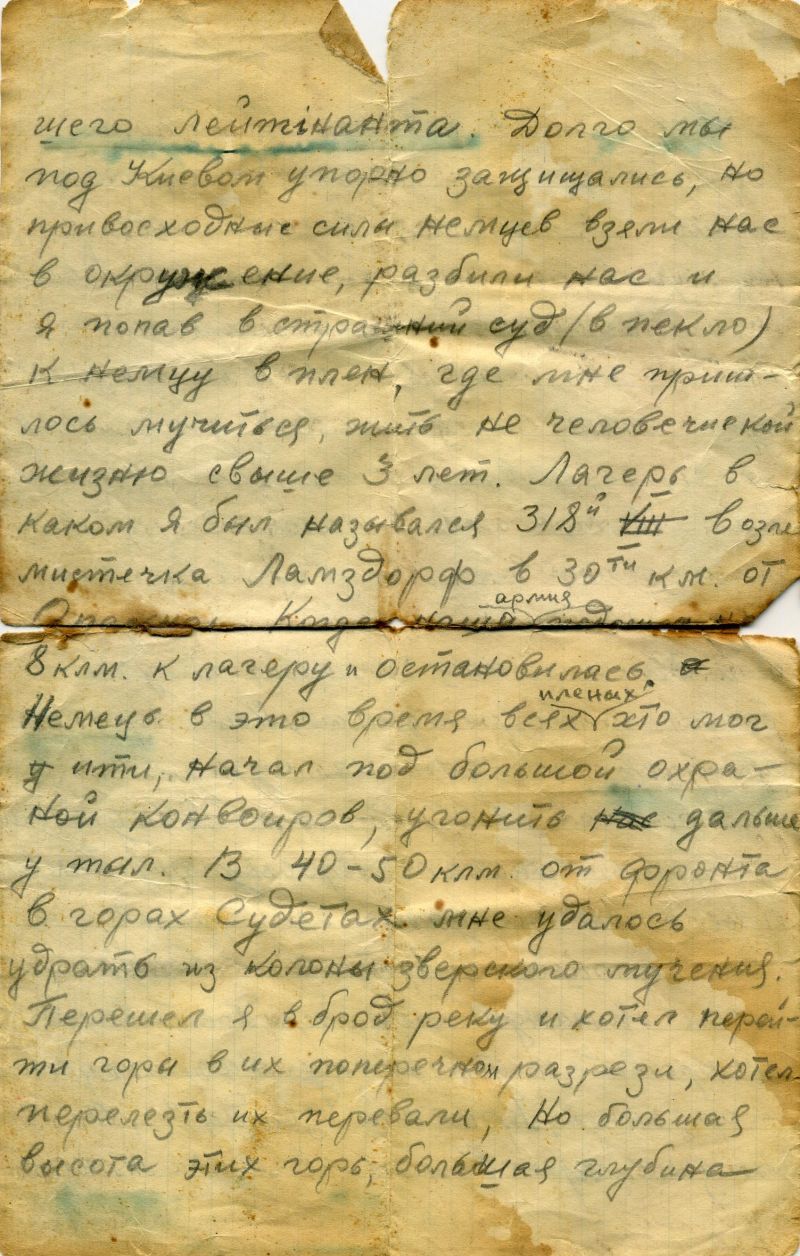 шего лейтінанта. Долго мы
под Киевом упорно защищались, но
привосходные силы немцев взяли нас
в окружение, разбили нас и
я попав в страшний суд (в пекло)
к немцу в плен, где мне приш-
лось мучиться, жить не человечиской
жизню свыше 3 лет. Лагерь в
каком я был назывался 318й VIII возле
мистечка Ламздорф в 30ти км. от
армия
8 клм. к лагеру и остановилась.
пленых
Немець в это время всях хто мог
у ити, начал под большой охра-
ной конвоиров, угонить нас дальше
у тыл. В 40-50 клм. от фронта
в горах Судетах мне удалось
удрать из колоны зверского мучения.
Перешел я в брод реку и хотел перей-
ти горы в их поперечном разрези, хотел
перелезть их перевали, но большая
высота этих горь, большая глубина